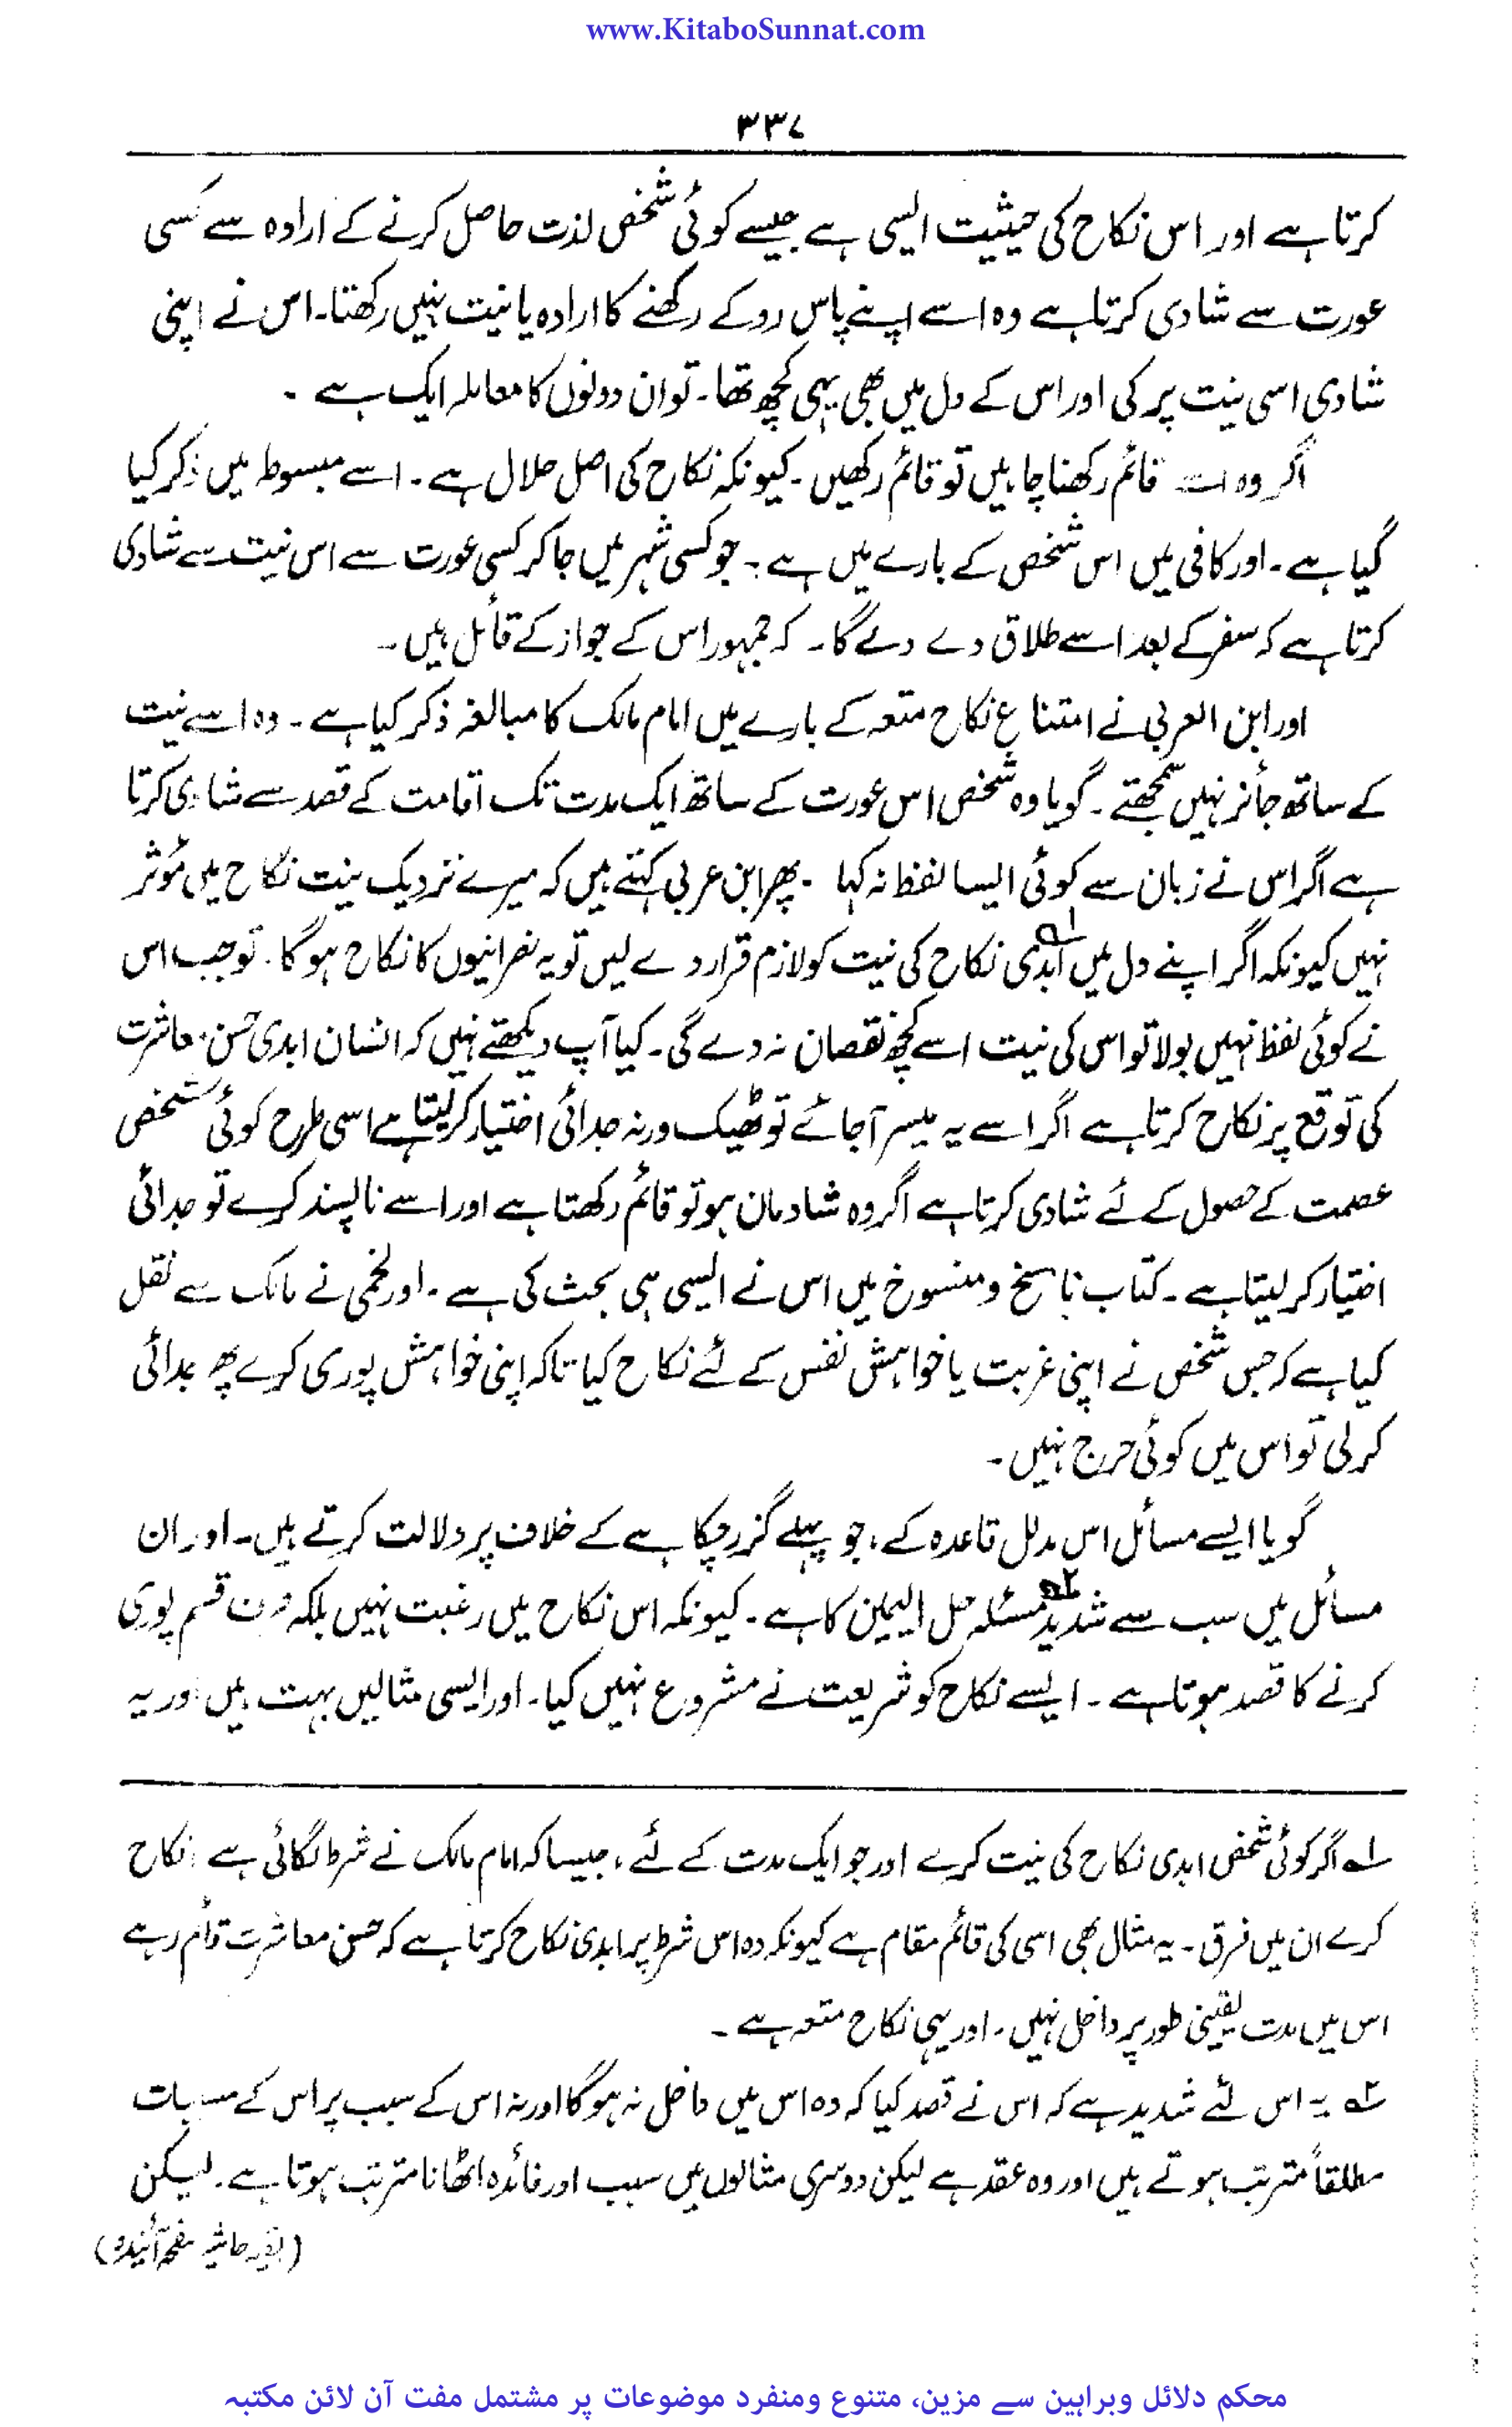 www.KitaboSunnat.com
۳۳۷
کرتا ہے اور اس نکاح کی حیثیت ایسی ہے جیسے کوئی شخص لذت حاصل کرنے کے ارادہ سے کسی
عورت سے شادی کرتا ہے وہ اسے اپنے پاس روکے رکھنے کا ارادہ یا نیت نہیں رکھتا۔ اس نے اپنی
شادی اسی نیت پر کی اور اس کے دل میں بھی یہی کچھ تھا۔ تو ان دونوں کا معاملہ ایک ہے ۔
اگر وہ اسے قائم رکھنا چاہیں تو قائم رکھیں ۔ کیونکہ نکاح کی اصل حلال ہے ۔ اسے مبسوط میں ذکر کیا
گیا ہے ۔ اور کافی میں اس شخص کے بارے میں ہے ۔ جو کسی شہر میں جا کر کسی عورت سے اس نیت سے شادی
کرتا ہے کہ سفر کے بعد اسے طلاق دے دے گا ۔ کہ جمہور اس کے جواز کے قائل ہیں ۔
اور ابن العربی نے امتناع نکاح متعہ کے بارے میں امام مالک کا مبالغہ ذکر کیا ہے ۔ وہ اسے نیت
کے ساتھ جائز نہیں سمجھتے ۔ گویا وہ شخص اس عورت کے ساتھ ایک مدت تک اقامت کے قصد سے شادی کرتا
ہے اگر اس نے زبان سے کوئی ایسا لفظ نہ کہا ۔ پھر ابن عربی کہتے ہیں کہ میرے نزدیک نیت نکاح میں مؤثر
نہیں کیونکہ اگر اپنے دل میں ابدی۱؎ نکاح کی نیت کو لازم قرار دے لیں تو یہ نصرانیوں کا نکاح ہو گا ۔ تو جب اس
نے کوئی لفظ نہیں بولا تو اس کی نیت اسے کچھ نقصان نہ دے گی ۔ کیا آپ دیکھتے نہیں کہ انسان ابدی حسن معاشرت
کی توقع پر نکاح کرتا ہے اگر اسے یہ میسر آجائے تو ٹھیک ورنہ جدائی اختیار کر لیتا ہے اسی طرح کوئی شخص
عصمت کے حصول کے لئے شادی کرتا ہے اگر وہ شادمان ہو تو قائم رکھتا ہے اور اسے ناپسند کرے تو جدائی
اختیار کر لیتا ہے ۔ کتاب ناسخ و منسوخ میں اس نے ایسی ہی بحث کی ہے ۔ اور لخمی نے مالک سے نقل
کیا ہے کہ جس شخص نے اپنی غربت یا خواہش نفس کے لئے نکاح کیا تاکہ اپنی خواہش پوری کرے پھر جدائی
کر لی تو اس میں کوئی حرج نہیں ۔
گویا ایسے مسائل اس مدلل قاعدہ کے ، جو پہلے گزر چکا ہے کے خلاف پر دلالت کرتے ہیں ۔ اور ان
مسائل میں سب سے شدید۲؎ مسئلہ حل الیمین کا ہے ۔ کیونکہ اس نکاح میں رغبت نہیں بلکہ صرف قسم پوری
کرنے کا قصد ہوتا ہے ۔ ایسے نکاح کو شریعت نے مشروع نہیں کیا ۔ اور ایسی مثالیں بہت ہیں اور یہ
۱؎ اگر کوئی شخص ابدی نکاح کی نیت کرے اور جو ایک مدت کے لئے ، جیسا کہ امام مالک نے شرط لگائی ہے نکاح
کرے ان میں فرق ۔ یہ مثال بھی اسی کی قائم مقام ہے کیونکہ وہ اس شرط پر ابدی نکاح کرتا ہے کہ حسن معاشرت قائم رہے
اس میں مدت یقینی طور پر داخل نہیں ۔ اور یہی نکاح متعہ ہے ۔
۲؎ یہ اس لئے شدید ہے کہ اس نے قصد کیا کہ وہ اس میں داخل نہ ہو گا اور نہ اس کے سبب پر اس کے مسببات
مطلقاً مترتب ہوتے ہیں اور وہ عقد ہے لیکن دوسری مثالوں میں سبب اور فائدہ اٹھانا مترتب ہوتا ہے ۔ لیکن
(بقیہ حاشیہ صفحہ آئندہ)
محکم دلائل وبراہین سے مزین، متنوع ومنفرد موضوعات پر مشتمل مفت آن لائن مکتبہ